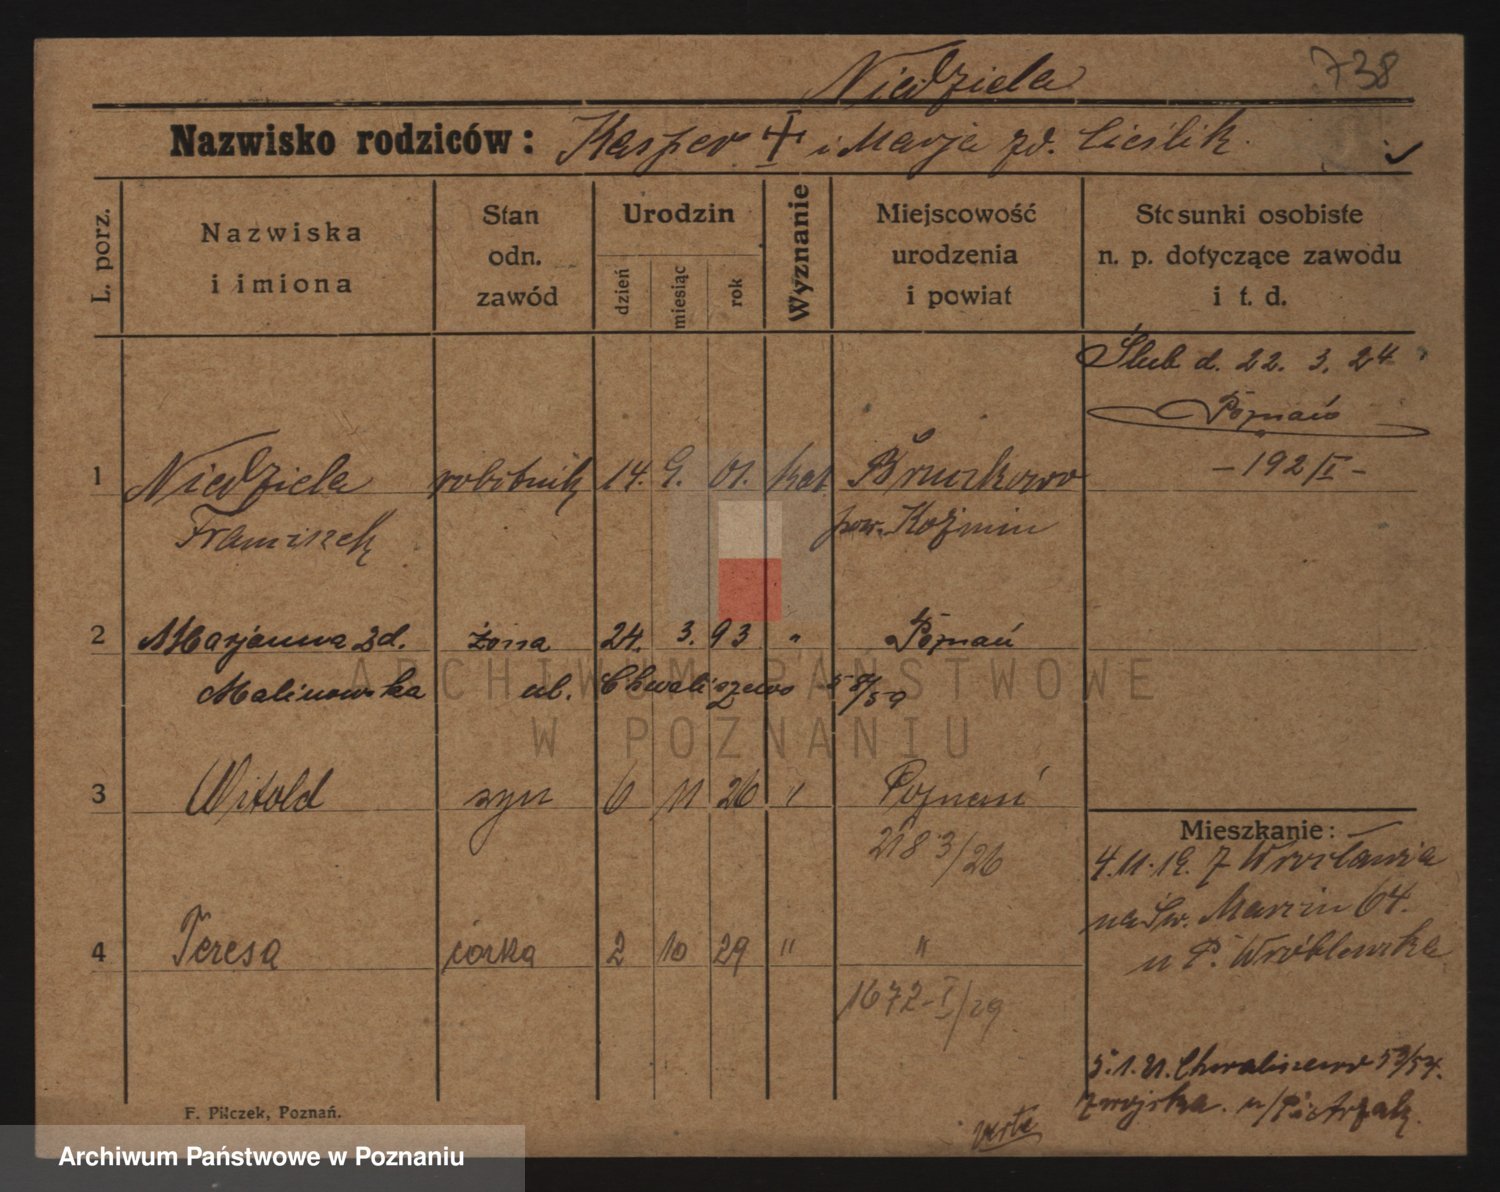 Niedziela 738
Nazwisko rodziców: Kasper i Marja zd. Cieślik
L. porz.
Nazwiska i imiona
Stan odn. zawód
Urodzin
dzień
miesiąc
rok
Wyznanie
Miejscowość urodzenia i powiat
Stosunki osobiste n. p. dotyczące zawodu i t. d.
Ślub d. 22. 3. 24
Poznań
- 192/I -
1 Niedziela robotnik 14. 9. 01. kat
Franciszek pow. Koźmin
2 Marjanna zd. żona 24. 3. 93 " Poznań
Malinowska ul. Chwaliszewo
3 Witold syn 6 11 26 " Poznań
218 3/26
Mieszkanie:
4.11.19. z Wrocławia
na Św. Marcin 64.
u P. Wróblewska
4 Teresa córka 2 10 29 " "
1672-I/29
5.1.21. Chwaliszewo 53/54.
z wojska. u/Pietrzak
verte
F. Pilczek, Poznań.
ARCHIWUM PAŃSTWOWE
W POZNANIU
Archiwum Państwowe w Poznaniu